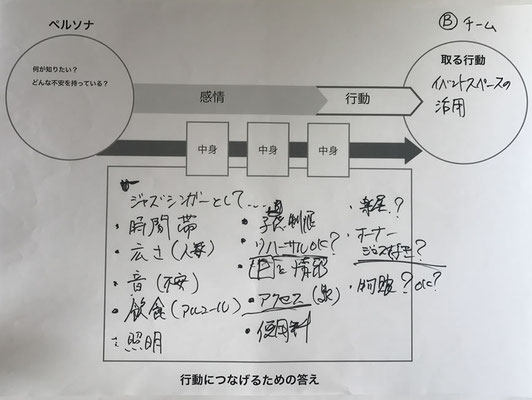 Ⓑ チーム
ペルソナ
何が知りたい？
どんな不安を持っている？
取る行動
イベントスペースの
活用
感情
行動
中身
中身
中身
ジャズシンガーとして....
・時間帯
・広さ(人数)
・音(不安)
・飲食(アルコール)
照明
リハーサルOK?
・アクセス
・使用料
・楽屋?
・オーナー
ジャズ好き?
行動につなげるための答え